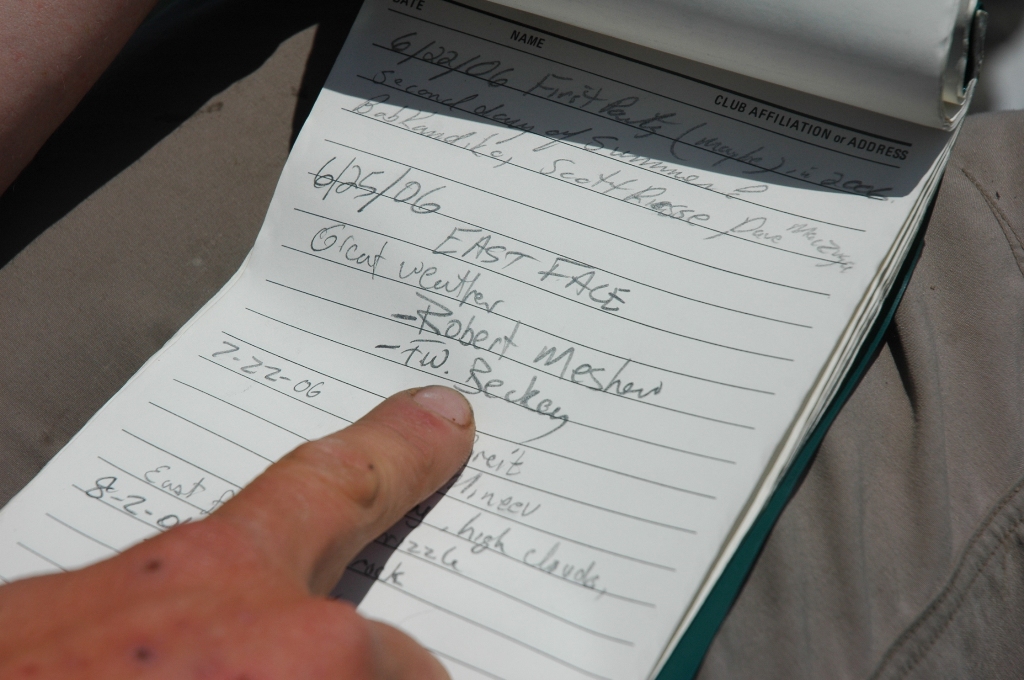 DATE
NAME
CLUB AFFILIATION or ADDRESS
6/22/06 First Party (maybe) in 2006
second day of Summer!
Bob Kandiko, Scott Dave
6/25/06
EAST FACE
Great weather
- Robert Meshew
- F.W. Beckey
7-22-06
reit
Mineev
East f
, high clouds,
8-2-0